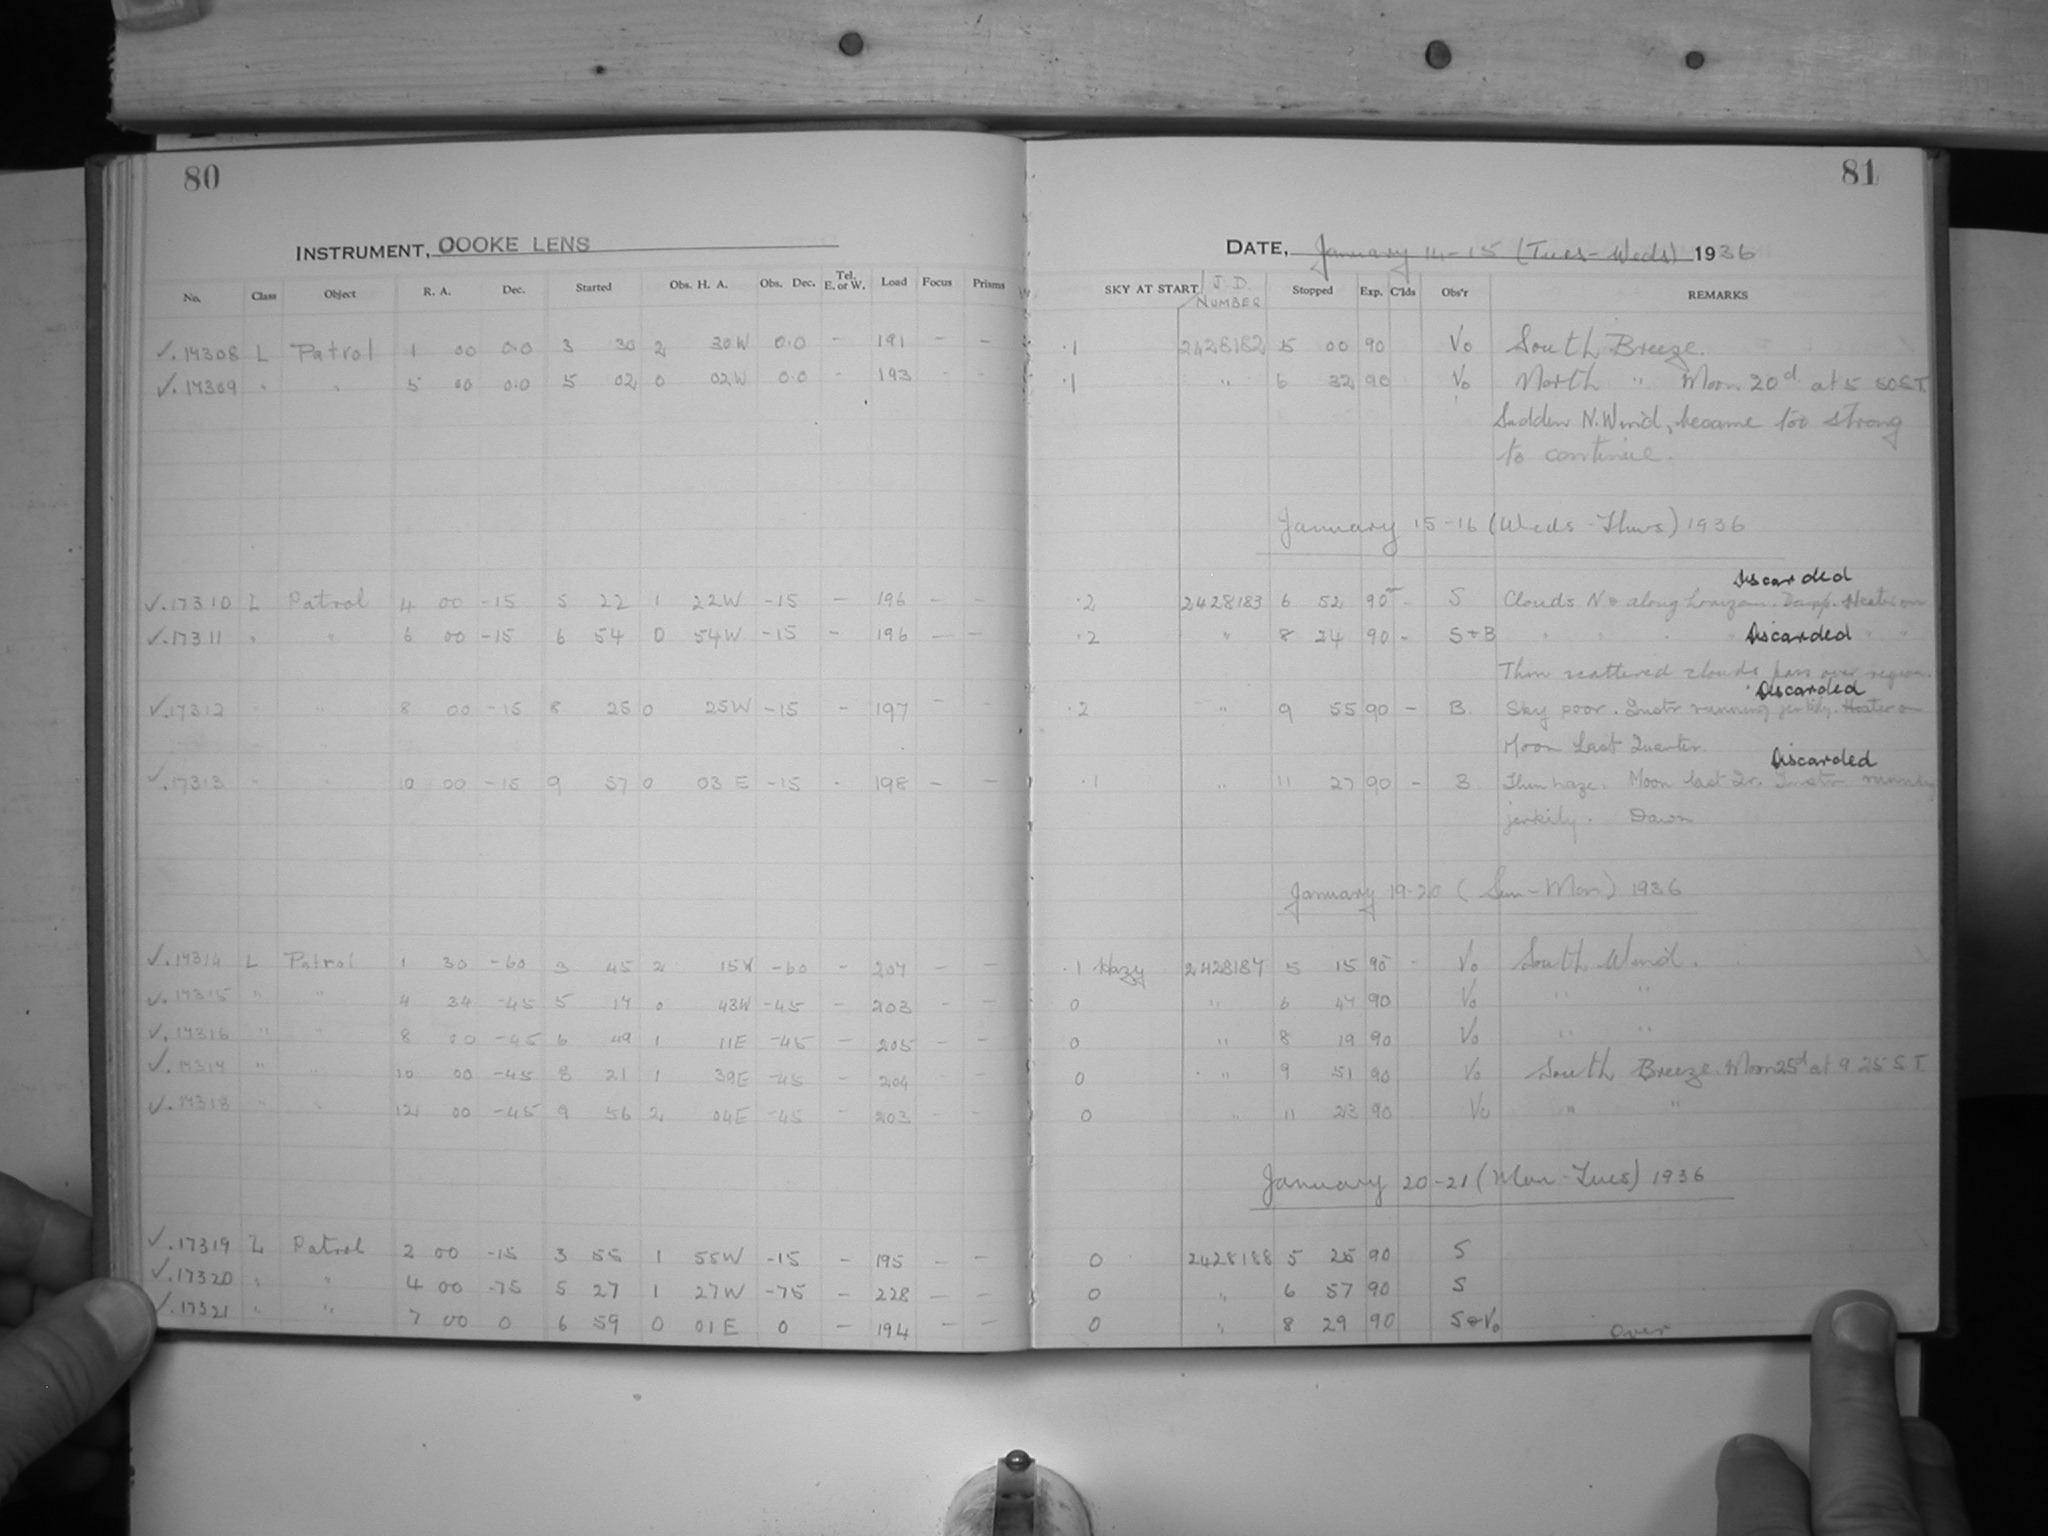 80
INSTRUMENT, COOKE LENS
No. Class Object R. A. Dec. Started Obs. H. A. Obs. Dec. Tel. E. or W. Load Focus Prisms
✓.17308 L Patrol 1 00 0.0 3 30 2 30W 0.0 - 191 - -
✓.17309 " " 5 00 0.0 5 02 0 02W 0.0 - 193 - -
✓.17310 L Patrol 4 00 -15 5 22 1 22W -15 - 196 - -
✓.17311 " " 6 00 -15 6 54 0 54W -15 - 196 - -
✓.17312 " " 8 00 -15 8 25 0 25W -15 - 197 - -
✓.17313 " " 10 00 -15 9 57 0 03 E -15 - 198 - -
✓.17314 L Patrol 1 30 -60 3 45 2 15W -60 - 207 - -
✓.17315 " " 4 34 -45 5 17 0 43W -45 - 203 - -
✓.17316 " " 8 00 -45 6 49 1 11E -45 - 205 - -
✓.17317 " " 10 00 -45 8 21 1 39E -45 - 204 - -
✓.17318 " " 12 00 -45 9 56 2 04E -45 - 203 - -
✓.17319 L Patrol 2 00 -15 3 55 1 55W -15 - 195 - -
✓.17320 " " 4 00 -75 5 27 1 27W -75 - 228 - -
✓.17321 " " 7 00 0 6 59 0 01E 0 - 194 - -
81
DATE, January 14-15 (Tues-Weds) 1936
SKY AT START J.D. NUMBER Stopped Exp. C'lds Obs'r REMARKS
.1 2428182 5 00 90 Vo South Breeze.
.1 " 6 32 90 Vo North " Moon 20d at 5 50 S.T.
Sudden N. Wind, became too strong
to continue.
January 15-16 (Weds-Thurs) 1936
Discarded
.2 2428183 6 52 90 - S Clouds N & along horizon. Damp. Heater on
.2 " 8 24 90 - S+B " " " Discarded " "
Thin scattered clouds pass over region.
Discarded
.2 " 9 55 90 - B. Sky poor. Instr running jerkily. Heater on
Moon Last Quarter.
Discarded
.1 " 11 27 90 - B Thin haze. Moon last Qr. Instr running
jerkily. Dawn
January 19-20 (Sun-Mon) 1936
.1 Hazy 2428187 5 15 90 - Vo South Wind.
0 " 6 47 90 Vo " "
0 " 8 19 90 Vo " "
0 " 9 51 90 Vo South Breeze. Moon 25d at 9 25 S.T.
0 " 11 23 90 Vo " "
January 20-21 (Mon-Tues) 1936
0 2428188 5 25 90 S
0 " 6 57 90 S
0 " 8 29 90 S+Vo
Over